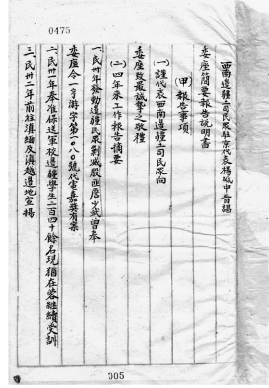 0475
西南邊疆土司民眾駐京代表楊砥中晉謁
委座簡要報告說明書
(甲)報告事項
(一)謹代表西南邊疆土司民眾向
委座致最誠摯之敬禮
(二)四年來工作報告摘要
一、民卅年發動邊疆民眾剿滅股匪唐少武曾奉
委座令一亨游字第一〇八〇號代電嘉奬有案
二、民卅一年奉准保送軍校邊疆學生二百四十餘名現猶在蓉繼續受訓
三、民卅一年前往滇緬及滇越邊地宣揚
005